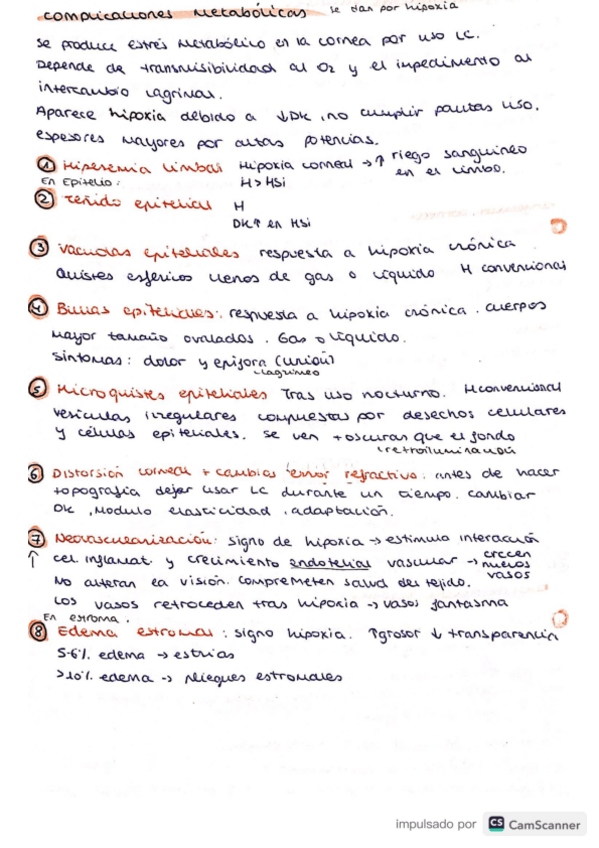 complicaciones metabólicas se dan por hipoxia
se produce estrés metabólico en la cornea por uso LC.
Depende de transmisibilidad al O2 y el impedimento al
intercambio lagrimal.
Aparece hipoxia debido a ↓Dk, no cumplir pautas uso,
espesores mayores por altas potencias.
① Hiperemia limbal Hipoxia corneal → ↑ riego sanguineo
en el limbo.
En Epitelio: H > HSi
② Teñido epitelial H
DK↑ en HSi
③ Vacuolas epiteliales respuesta a hipoxia crónica
Quistes esfericos llenos de gas o líquido H convencional
④ Bullas epiteliales: respuesta a hipoxia crónica. cuerpos
mayor tamaño ovalados. Gas o líquido.
Sintomas: dolor y epifora (unión)
lagrimeo
⑤ Microquistes epiteliales Tras uso nocturno. H convencional
vesículas irregulares compuestas por desechos celulares
y células epiteliales. se ven + oscuras que el fondo
retroiluminación
⑥ Distorsión corneal + cambios error refractivo: antes de hacer
topografía dejar usar LC durante un tiempo. cambiar
DK, Modulo elasticidad, adaptación.
⑦ Neovascularización: signo de hipoxia → estimulo interacción
↑ cel. inflamat. y crecimiento endotelial vascular → crecen
nuevos
vasos
No alteran la visión. comprometen salud del tejido.
Los vasos retroceden tras hipoxia → vasos fantasma
En estroma.
⑧ Edema estromal: signo hipoxia. ↑grosor ↓ transparencia
5-6% edema → estrias
>10% edema → pliegues estromales
impulsado por CS CamScanner